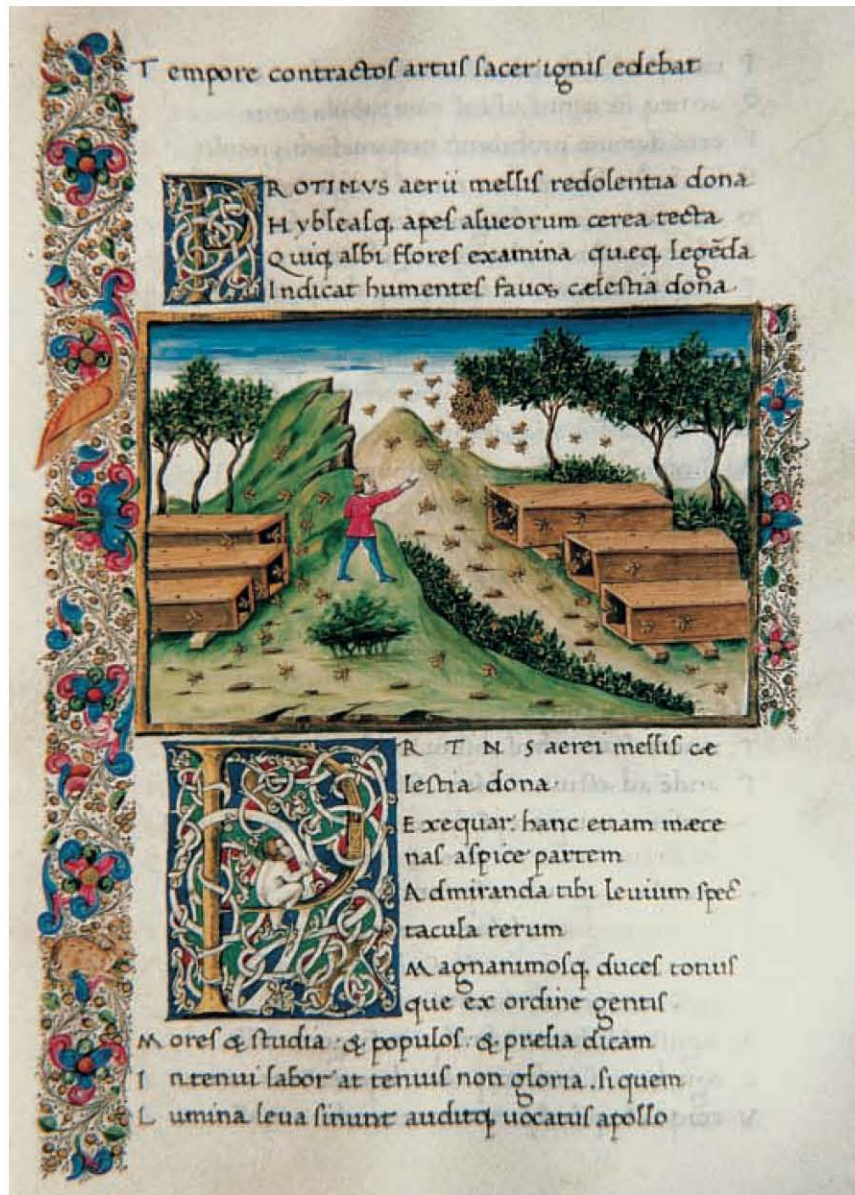 Tempore contractos artus sacer ignis edebat
PROTINVS aerii mellis redolentia dona
Hybleasq apes alueorum cerea tecta
Quiq albi flores examina quęq legẽda
Indicat humentes fauos cælestia dona.
P R T N S aerei mellis cæ
lestia dona
Exequar. hanc etiam mæce
nas aspice partem
Admiranda tibi leuium spec̃
tacula rerum
Magnanimosq duces totius
que ex ordine gentis
Mores & studia. & populos. & prelia dicam
In tenui labor at tenuis non gloria. si quem
Lumina leua sinunt auditq uocatus apollo